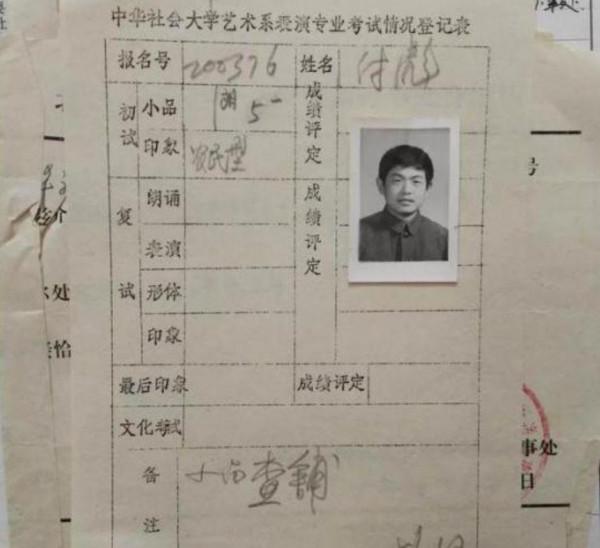 中华社会大学艺术系表演专业考试情况登记表
报名号 200376 姓名 付彪
初试 小品 5- 成绩评定
印象 农民型
复试 朗诵 成绩评定
表演
形体
印象
最后印象 成绩评定
文化考试
备注 小品查铺
号
处
恰
事处
日